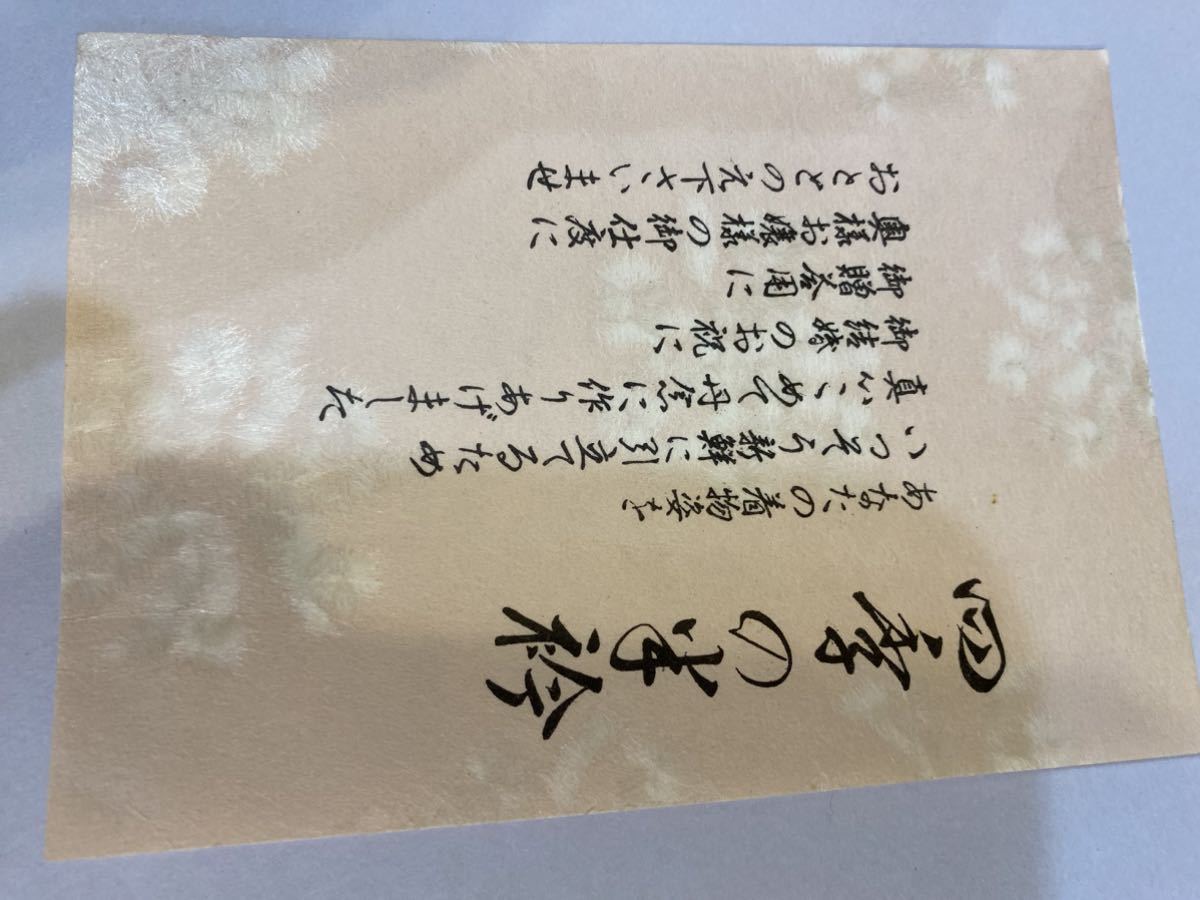 四季の半衿
あなたの着物姿を
いっそう新鮮に引立てるため
真心こめて丹念に作りあげました
御結婚のお祝に
御贈答用に
奥様お嬢様の御仕度に
おととのえ下さいませ